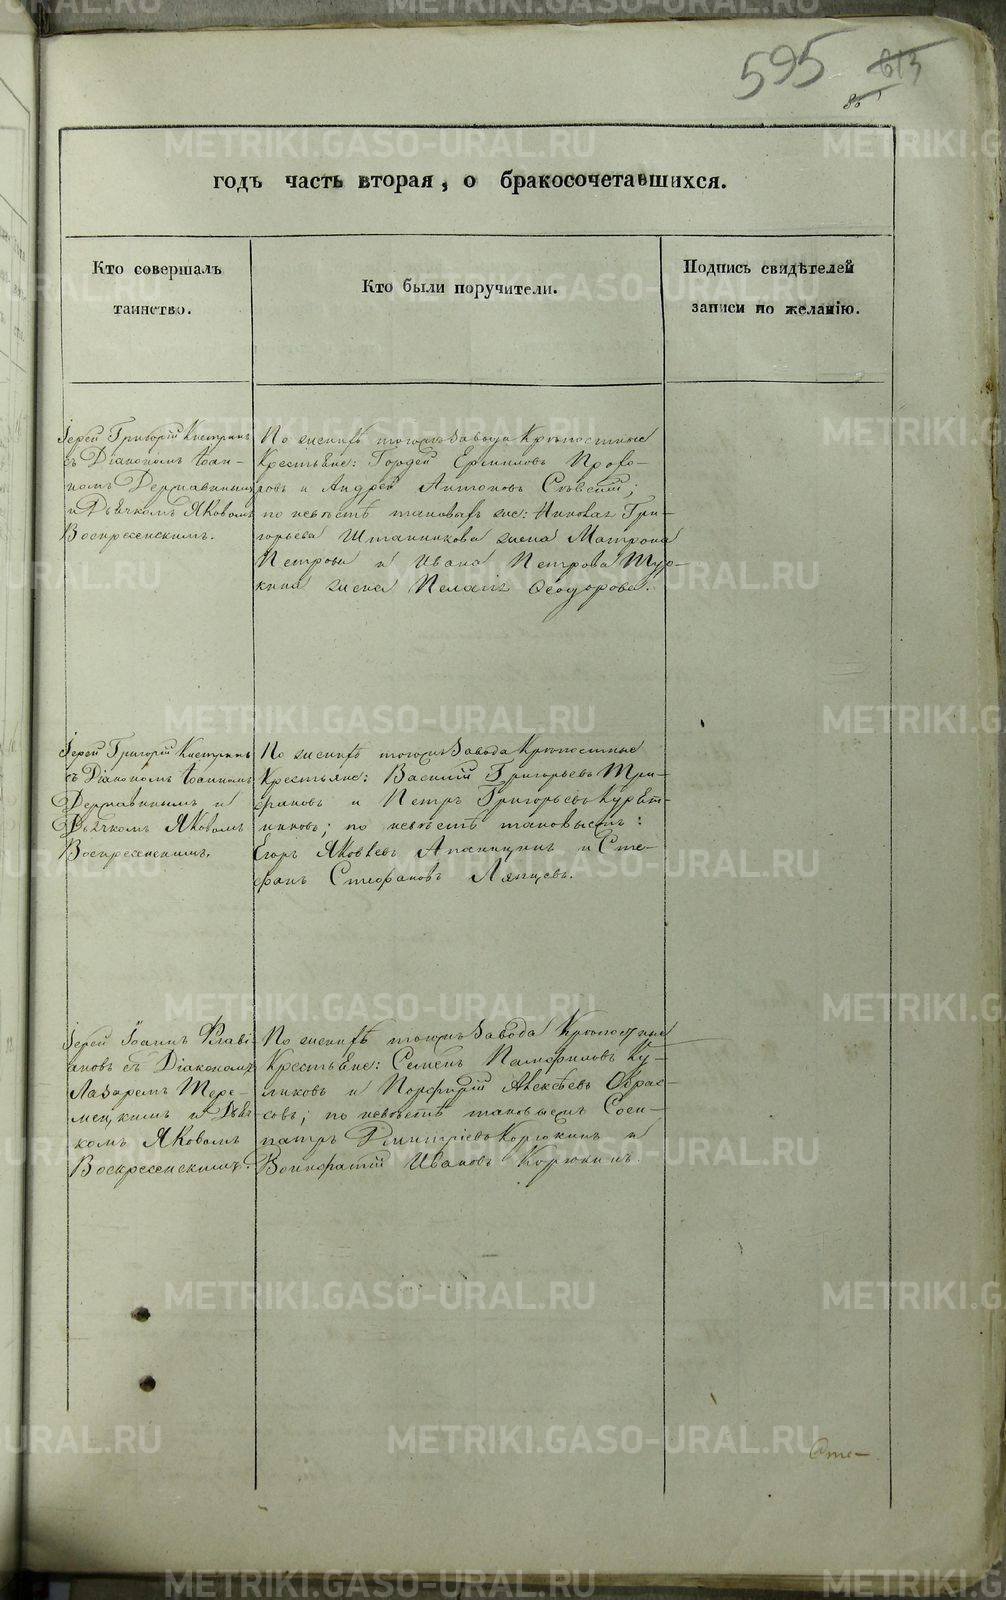 595 613
86
годъ часть вторая, о бракосочетавшихся.
Кто совершалъ
таинство.
Кто были поручители.
Подпись свидѣтелей
записи по желанію.
Іерей Григорій
съ Діакономъ Іоан-
номъ Державинымъ
и Дьячкомъ Яковомъ
Воскресенскимъ.
По женихѣ тогожъ Завода Крѣпостные
Крестьяне: Гордей Ермиловъ Прово-
ровъ и Андрей Антоновъ
по невѣстѣ жен: Николая Гри-
горьева Штанникова жена Матрона
Петрова и Ивана Петрова Тур-
кина жена Пелагія Ѳеодорова.
Іерей Григорій
съ Діакономъ Іоанномъ
Державинымъ и
Дьячкомъ Яковомъ
Воскресенскимъ.
По женихѣ тогожъ Завода Крѣпостные
Крестьяне: Василій Григорьевъ Три-
фановъ и Петръ Григорьевъ Курят-
никовъ; по невѣстѣ таковыежъ:
Егоръ Яковлевъ Апаницинъ и Сте-
фанъ Стефановъ Лапцевъ.
Іерей Іоаннъ Флаві-
ановъ съ Діакономъ
Лазаремъ Тере-
мецкимъ и Дьяч-
комъ Яковомъ
Воскресенскимъ.
По женихѣ тогожъ Завода Крѣпостные
Крестьяне: Семенъ Памфиловъ Ку-
ликовъ и Порфирій Алексѣевъ Обрас-
совъ; по невѣстѣ таковыежъ Соси-
патръ Дмитріевъ Корюкинъ и
Вонифатій Ивановъ Корюкинъ.
METRIKI.GASO-URAL.RU